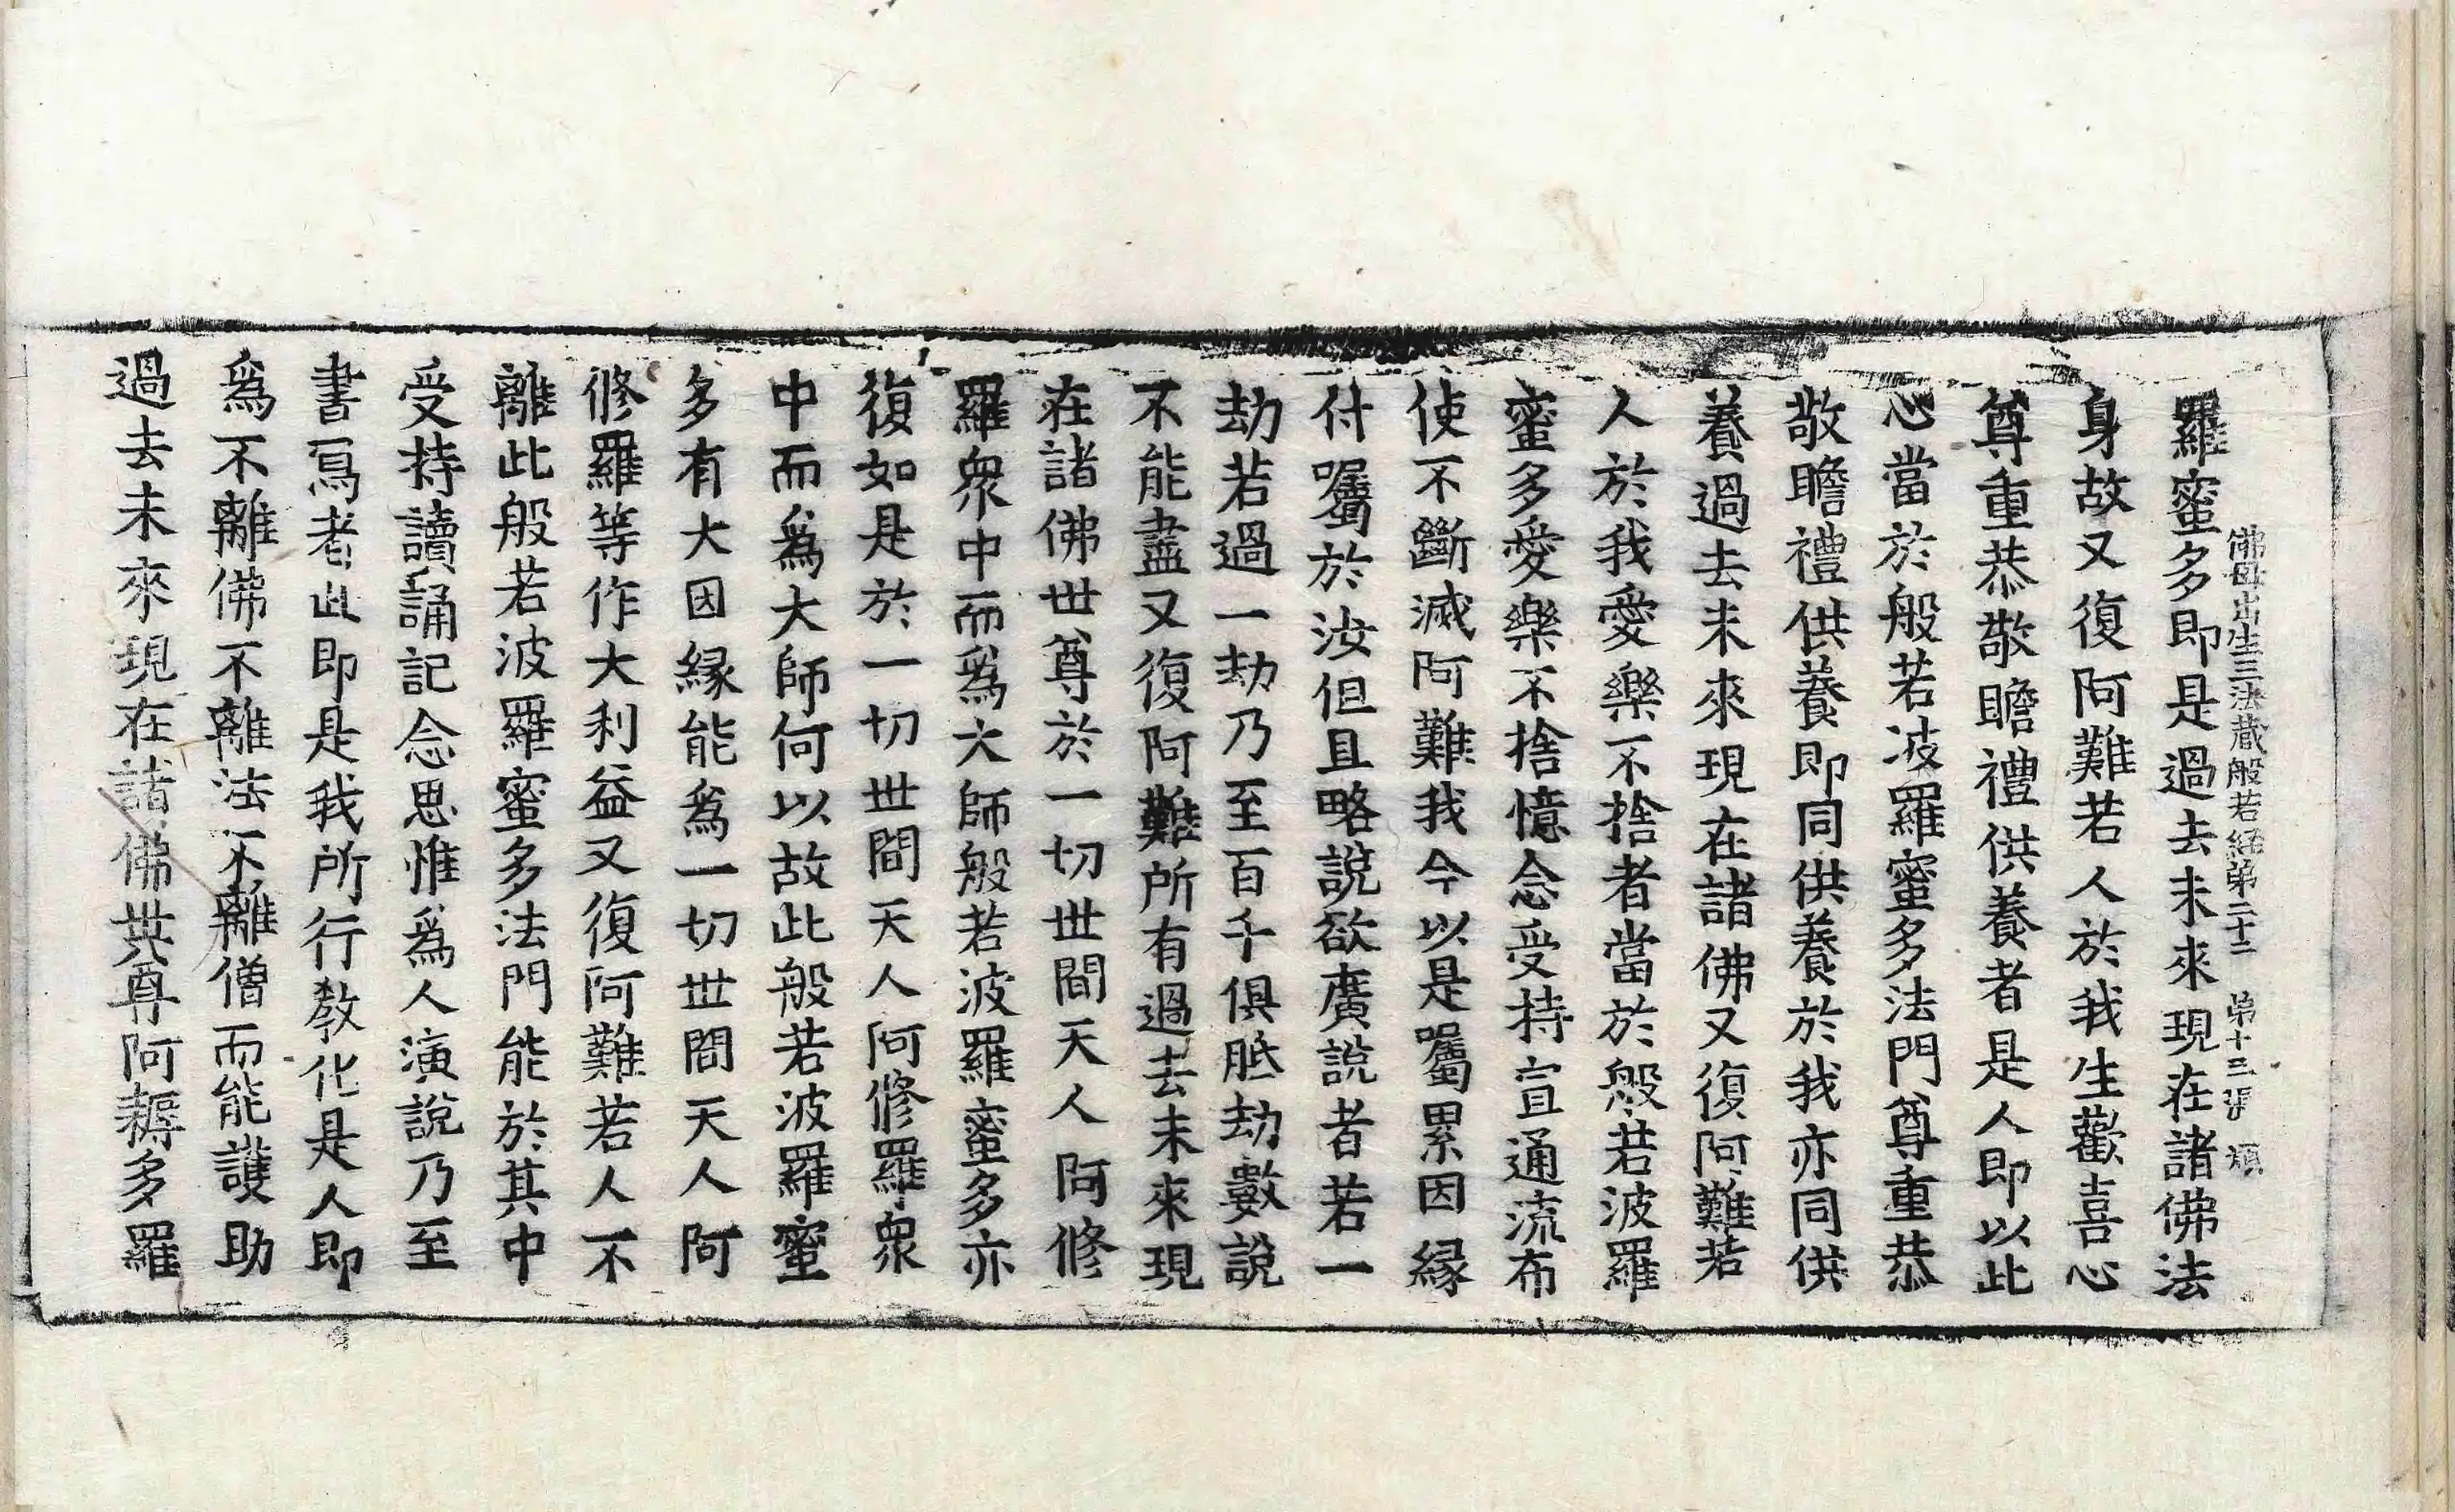 佛母出生三法藏般若經第二十二 第十三張 頌
羅蜜多即是過去未來現在諸佛法
身故又復阿難若人於我生歡喜心
尊重恭敬瞻禮供養者是人即以此
心當於般若波羅蜜多法門尊重恭
敬瞻禮供養即同供養於我亦同供
養過去未來現在諸佛又復阿難若
人於我愛樂不捨者當於般若波羅
蜜多愛樂不捨憶念受持宣通流布
使不斷滅阿難我今以是囑累因緣
付囑於汝但且略說欲廣說者若一
劫若過一劫乃至百千俱胝劫數說
不能盡又復阿難所有過去未來現
在諸佛世尊於一切世間天人阿修
羅衆中而爲大師般若波羅蜜多亦
復如是於一切世間天人阿修羅衆
中而爲大師何以故此般若波羅蜜
多有大因緣能爲一切世間天人阿
修羅等作大利益又復阿難若人不
離此般若波羅蜜多法門能於其中
受持讀誦記念思惟爲人演說乃至
書寫者此即是我所行教化是人即
爲不離佛不離法不離僧而能護助
過去未來現在諸佛世尊阿耨多羅